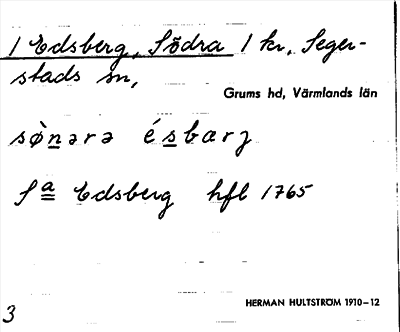 1 Edsberg, Södra 1 kr, Seger-
stads sn,
Grums hd, Värmlands län
sø̀nərə ésbarj
Sa Edsberg hfl 1765
HERMAN HULTSTRÖM 1910–12
3